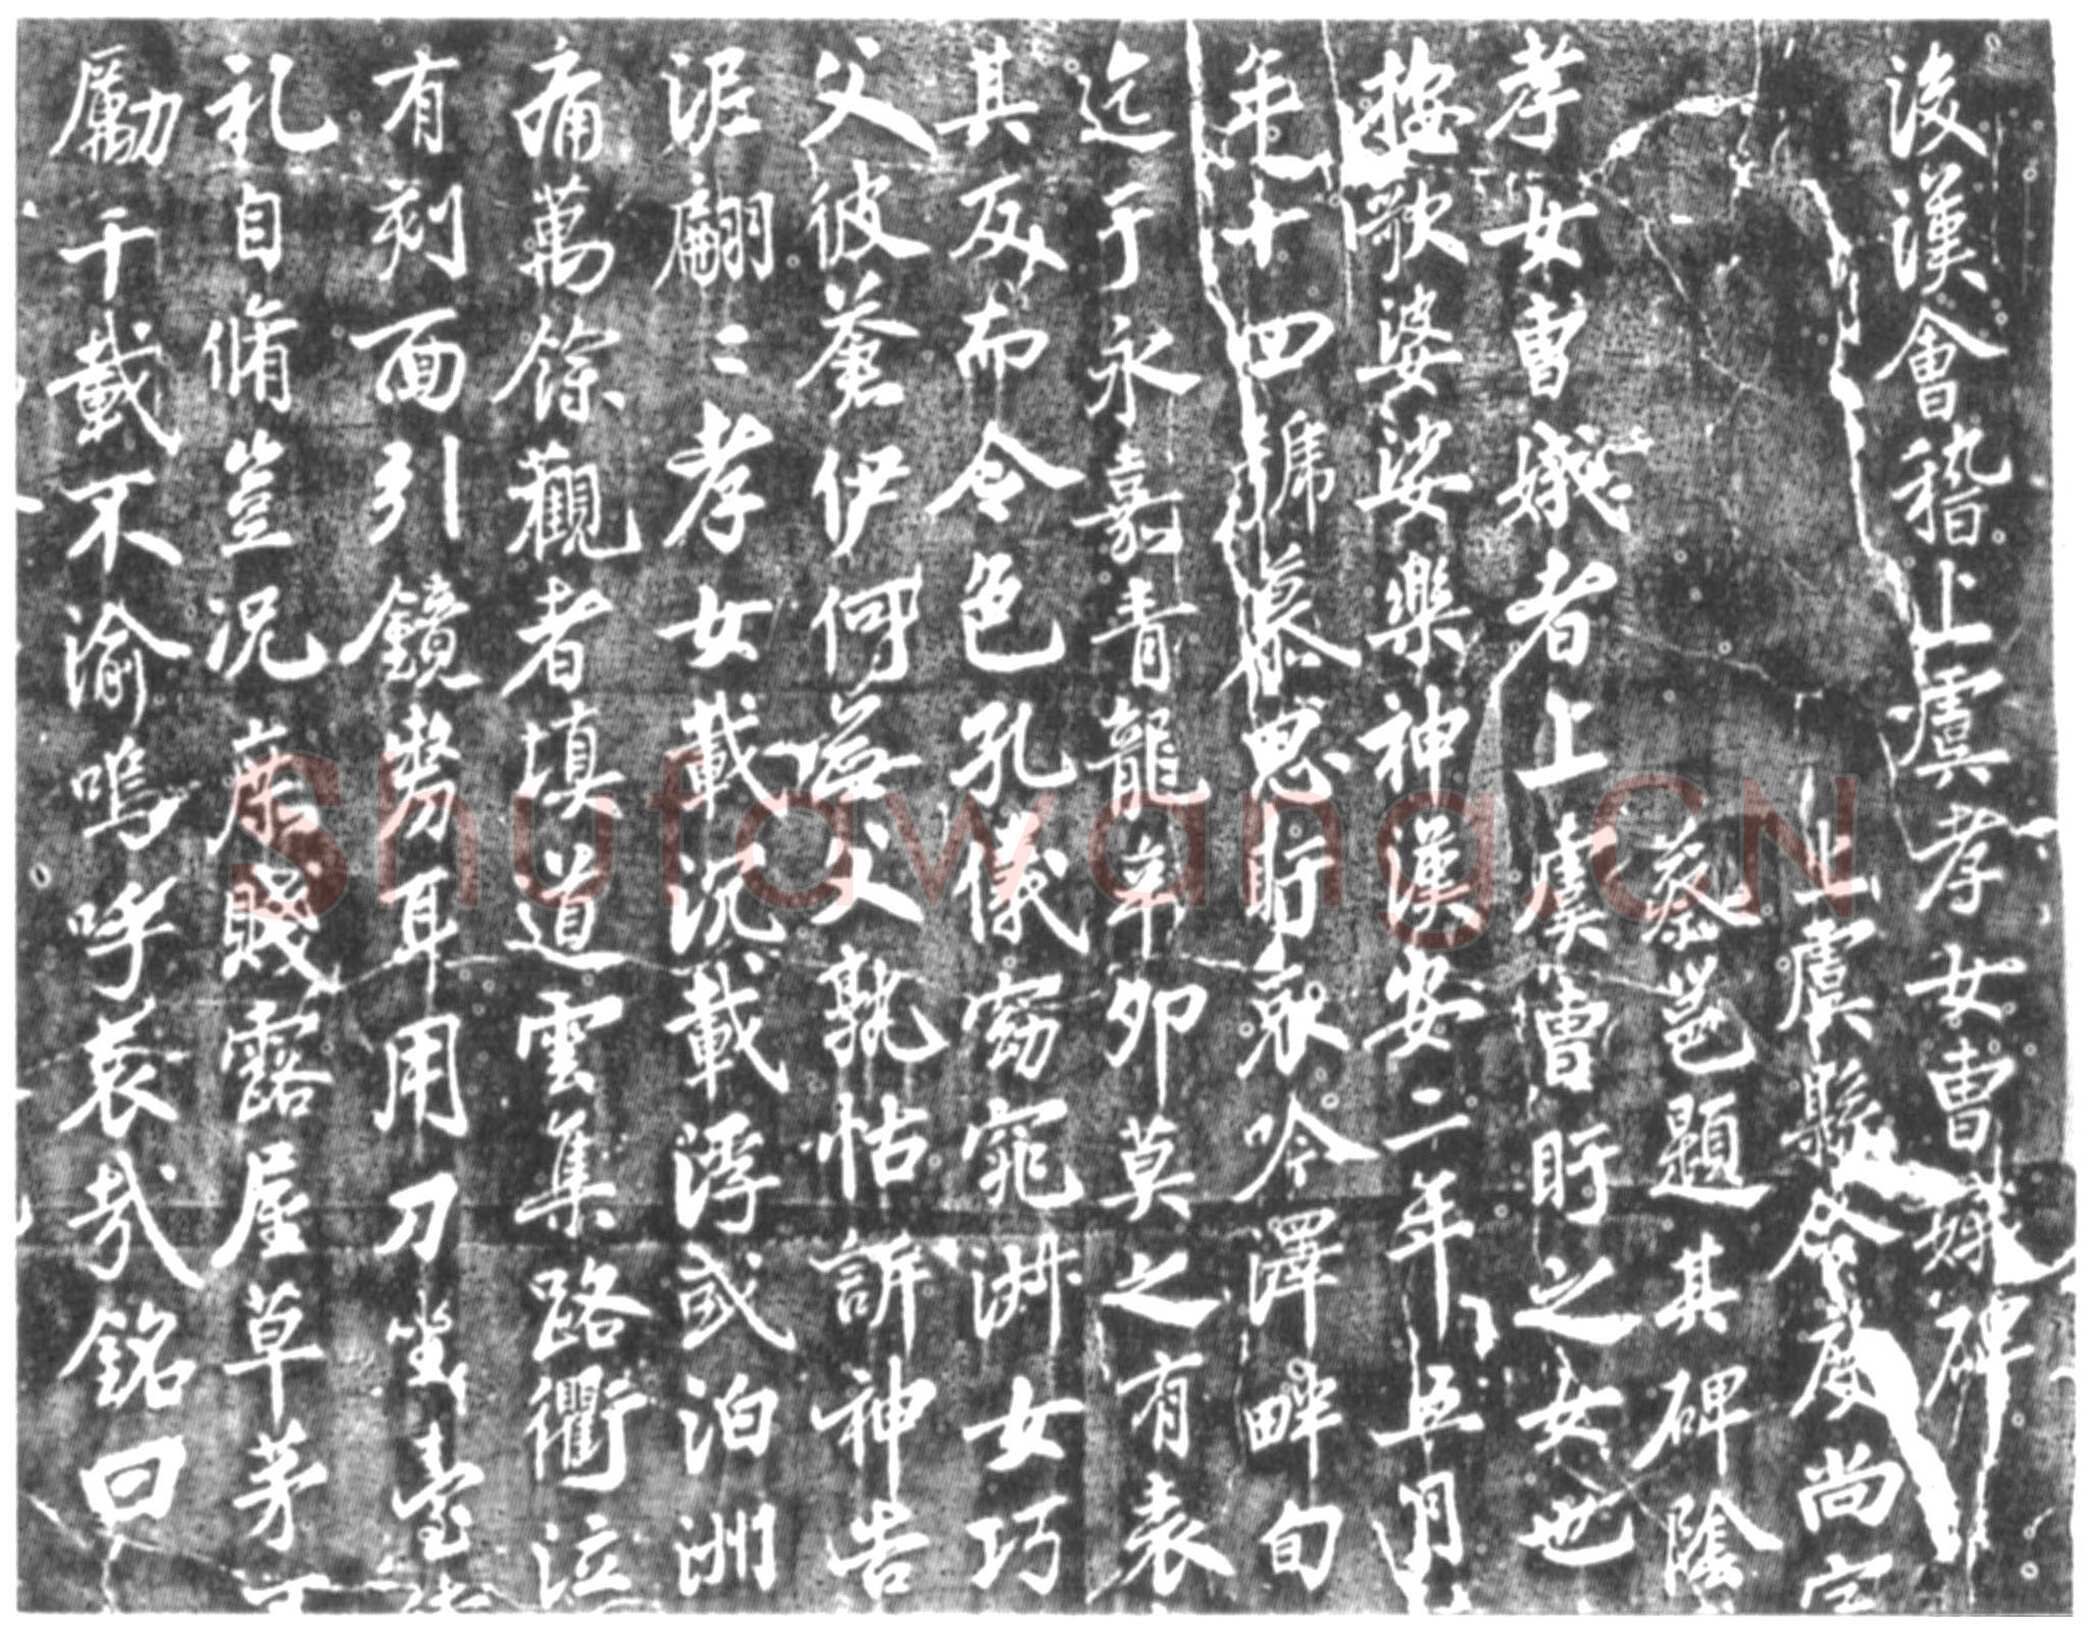 後漢會稽上虞孝女曹娥碑
上虞縣令度尚字
蔡邕題其碑陰
孝女曹娥者上虞曹盱之女也
按歌婆娑樂神漢安二年五月
年十四號慕思盱哀吟澤畔旬
迄于永嘉青龍辛卯莫之有表
其反而令色孔儀窈窕淑女巧
父彼蒼伊何無父孰怙訴神告
泥翩〻孝女載沉載浮或泊洲
痛萬餘觀者填道雲集路衢泣
有刻面引鏡剺耳用刀坐臺
礼自脩豈況庶賤露屋草茅不
勵千載不渝嗚呼哀哉銘曰
Shufawang.CN